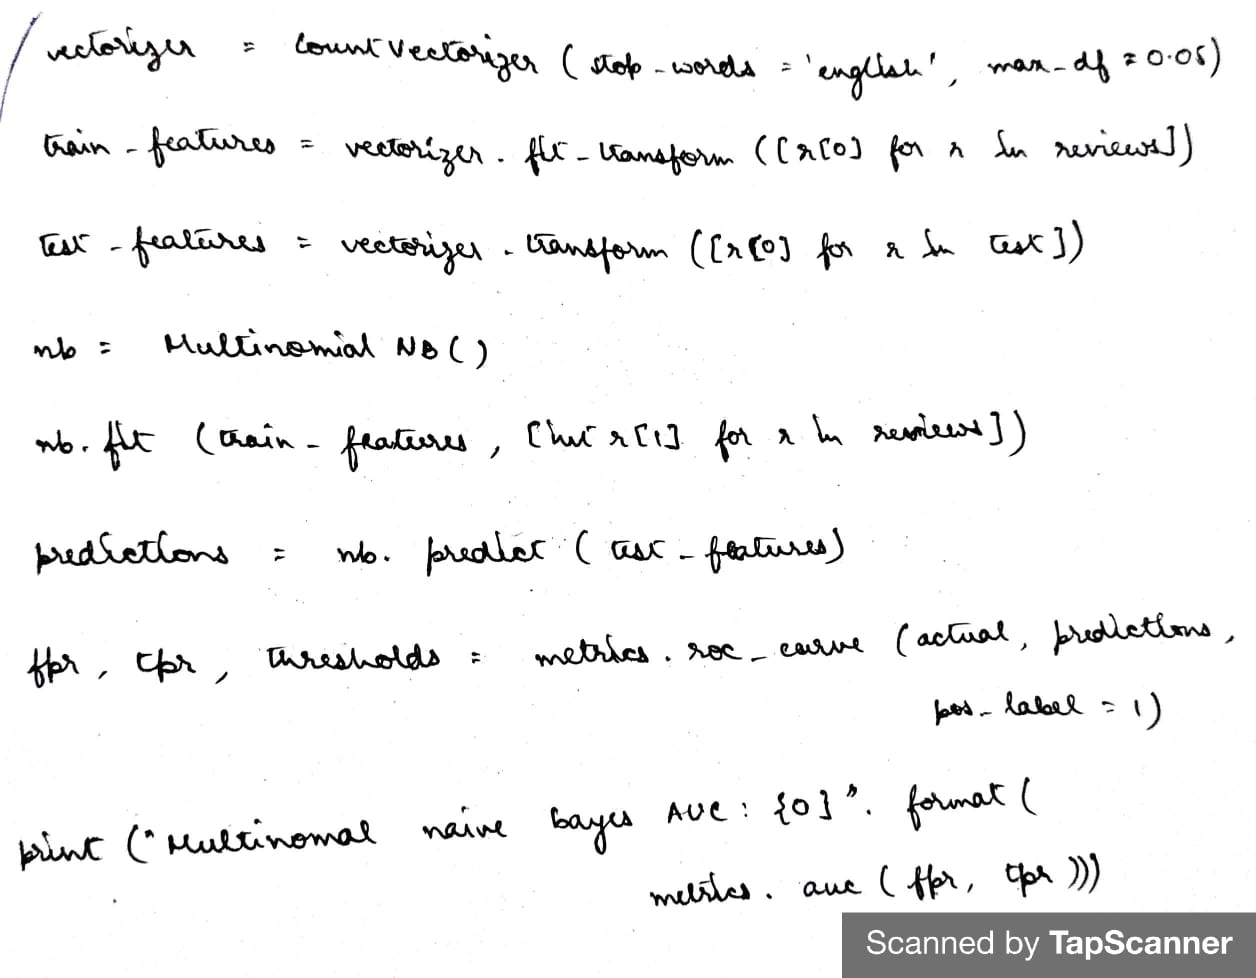 vectorizer = CountVectorizer ( stop_words = 'english', max_df = 0.05)
train_features = vectorizer. fit_transform ([r[0] for r in reviews])
test_features = vectorizer. transform ([r[0] for r in test])
nb = Multinomial NB ()
nb. fit (train_features, [int r[1] for r in reviews])
predictions = nb. predict ( test_features)
fpr, tpr, thresholds = metrics. roc_curve (actual, predictions,
pos_label = 1)
print ("Multinomal naive bayes AUC : {0}". format (
metrics. auc ( fpr, tpr )))
Scanned by TapScanner